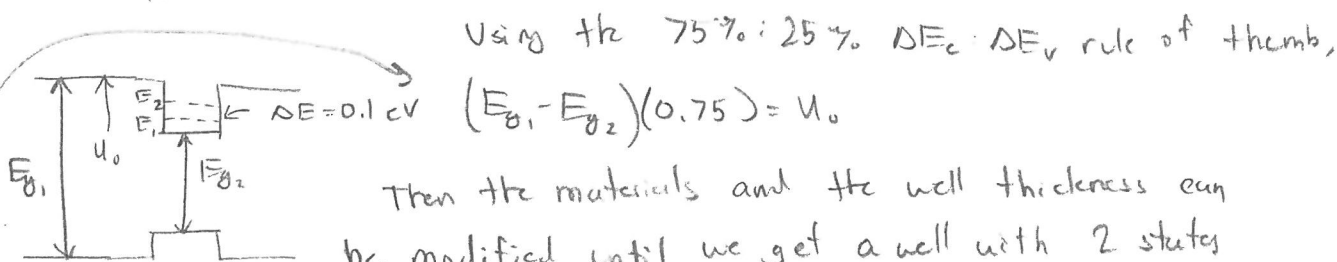 Using the 75%:25% ΔEc:ΔEv rule of themb,
E2
E1
ΔE=0.1 eV
(Eg1-Eg2)(0.75)=U0
Eg1
U0
Eg2
Then the materials and the well thickness can
be modified until we get a well with 2 states